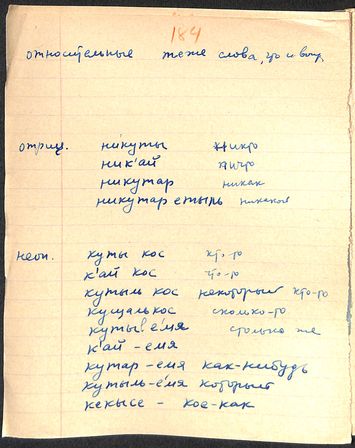 184
относительные те же слова, что и вопр.
отриц. никуты никто
ник'ай ничто
никутар никак
никутар етыль никакой
неоп. куты кос кто-то
к'ай кос что-то
кутыль кос некоторый кто-то
кущалькос сколько-то
куты е́мя столько же
к'ай - емя
кутар - емя как-нибудь
кутыль - е́мя который
кекысе - кое-как